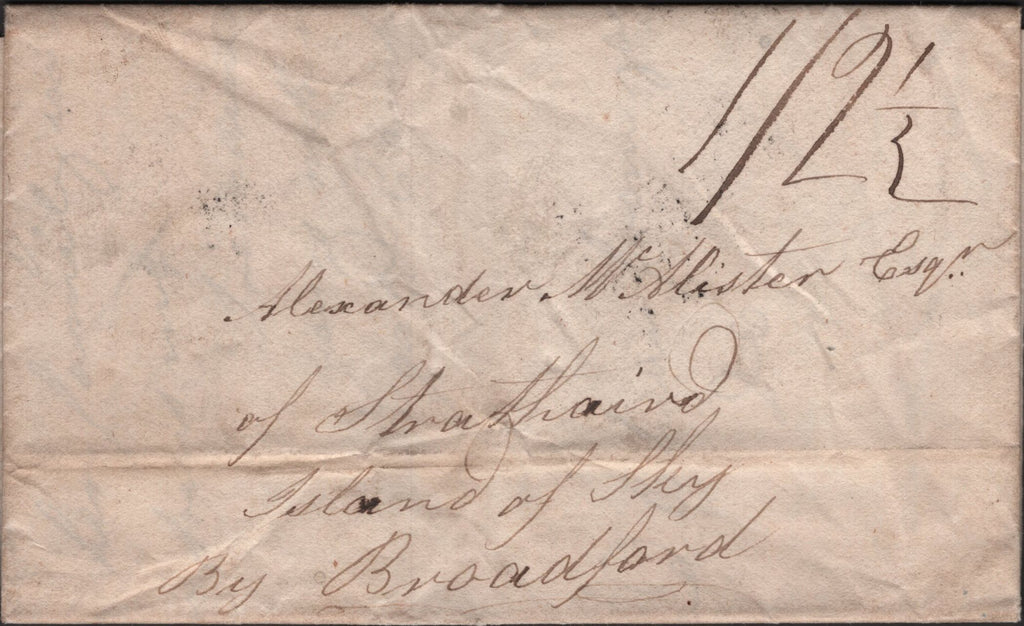 1/2 1/2
Alexander McAlister Esqr.
of Strathaird
Island of Sky
By Broadford